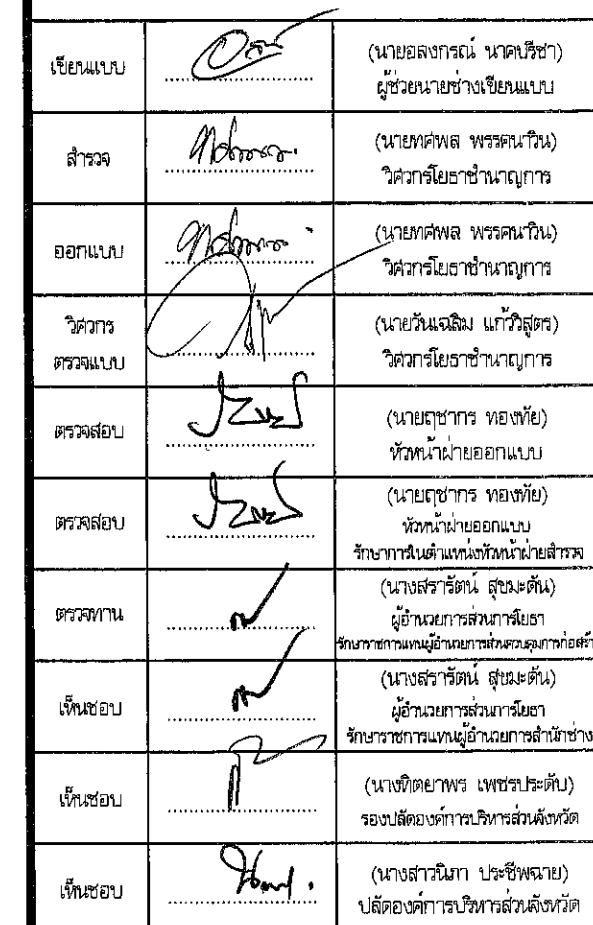 เขียนแบบ
(นายอลงกรณ์ นาคปรีชา)
ผู้ช่วยนายช่างเขียนแบบ
สำรวจ
(นายทศพล พรรคนาวิน)
วิศวกรโยธาชำนาญการ
ออกแบบ
(นายทศพล พรรคนาวิน)
วิศวกรโยธาชำนาญการ
วิศวกร
ตรวจแบบ
(นายวันเฉลิม แก้ววิสูตร)
วิศวกรโยธาชำนาญการ
ตรวจสอบ
(นายฤชากร ทองทัย)
หัวหน้าฝ่ายออกแบบ
ตรวจสอบ
(นายฤชากร ทองทัย)
หัวหน้าฝ่ายออกแบบ
รักษาการในตำแหน่งหัวหน้าฝ่ายสำรวจ
ตรวจทาน
(นางสรารัตน์ สุขมะดัน)
ผู้อำนวยการส่วนการโยธา
รักษาราชการแทนผู้อำนวยการส่วนควบคุมการก่อสร้า
เห็นชอบ
(นางสรารัตน์ สุขมะดัน)
ผู้อำนวยการส่วนการโยธา
รักษาราชการแทนผู้อำนวยการสำนักช่าง
เห็นชอบ
(นางทิตยาพร เพชรประดับ)
รองปลัดองค์การบริหารส่วนจังหวัด
เห็นชอบ
(นางสาวนิภา ประชีพฉาย)
ปลัดองค์การบริหารส่วนจังหวัด